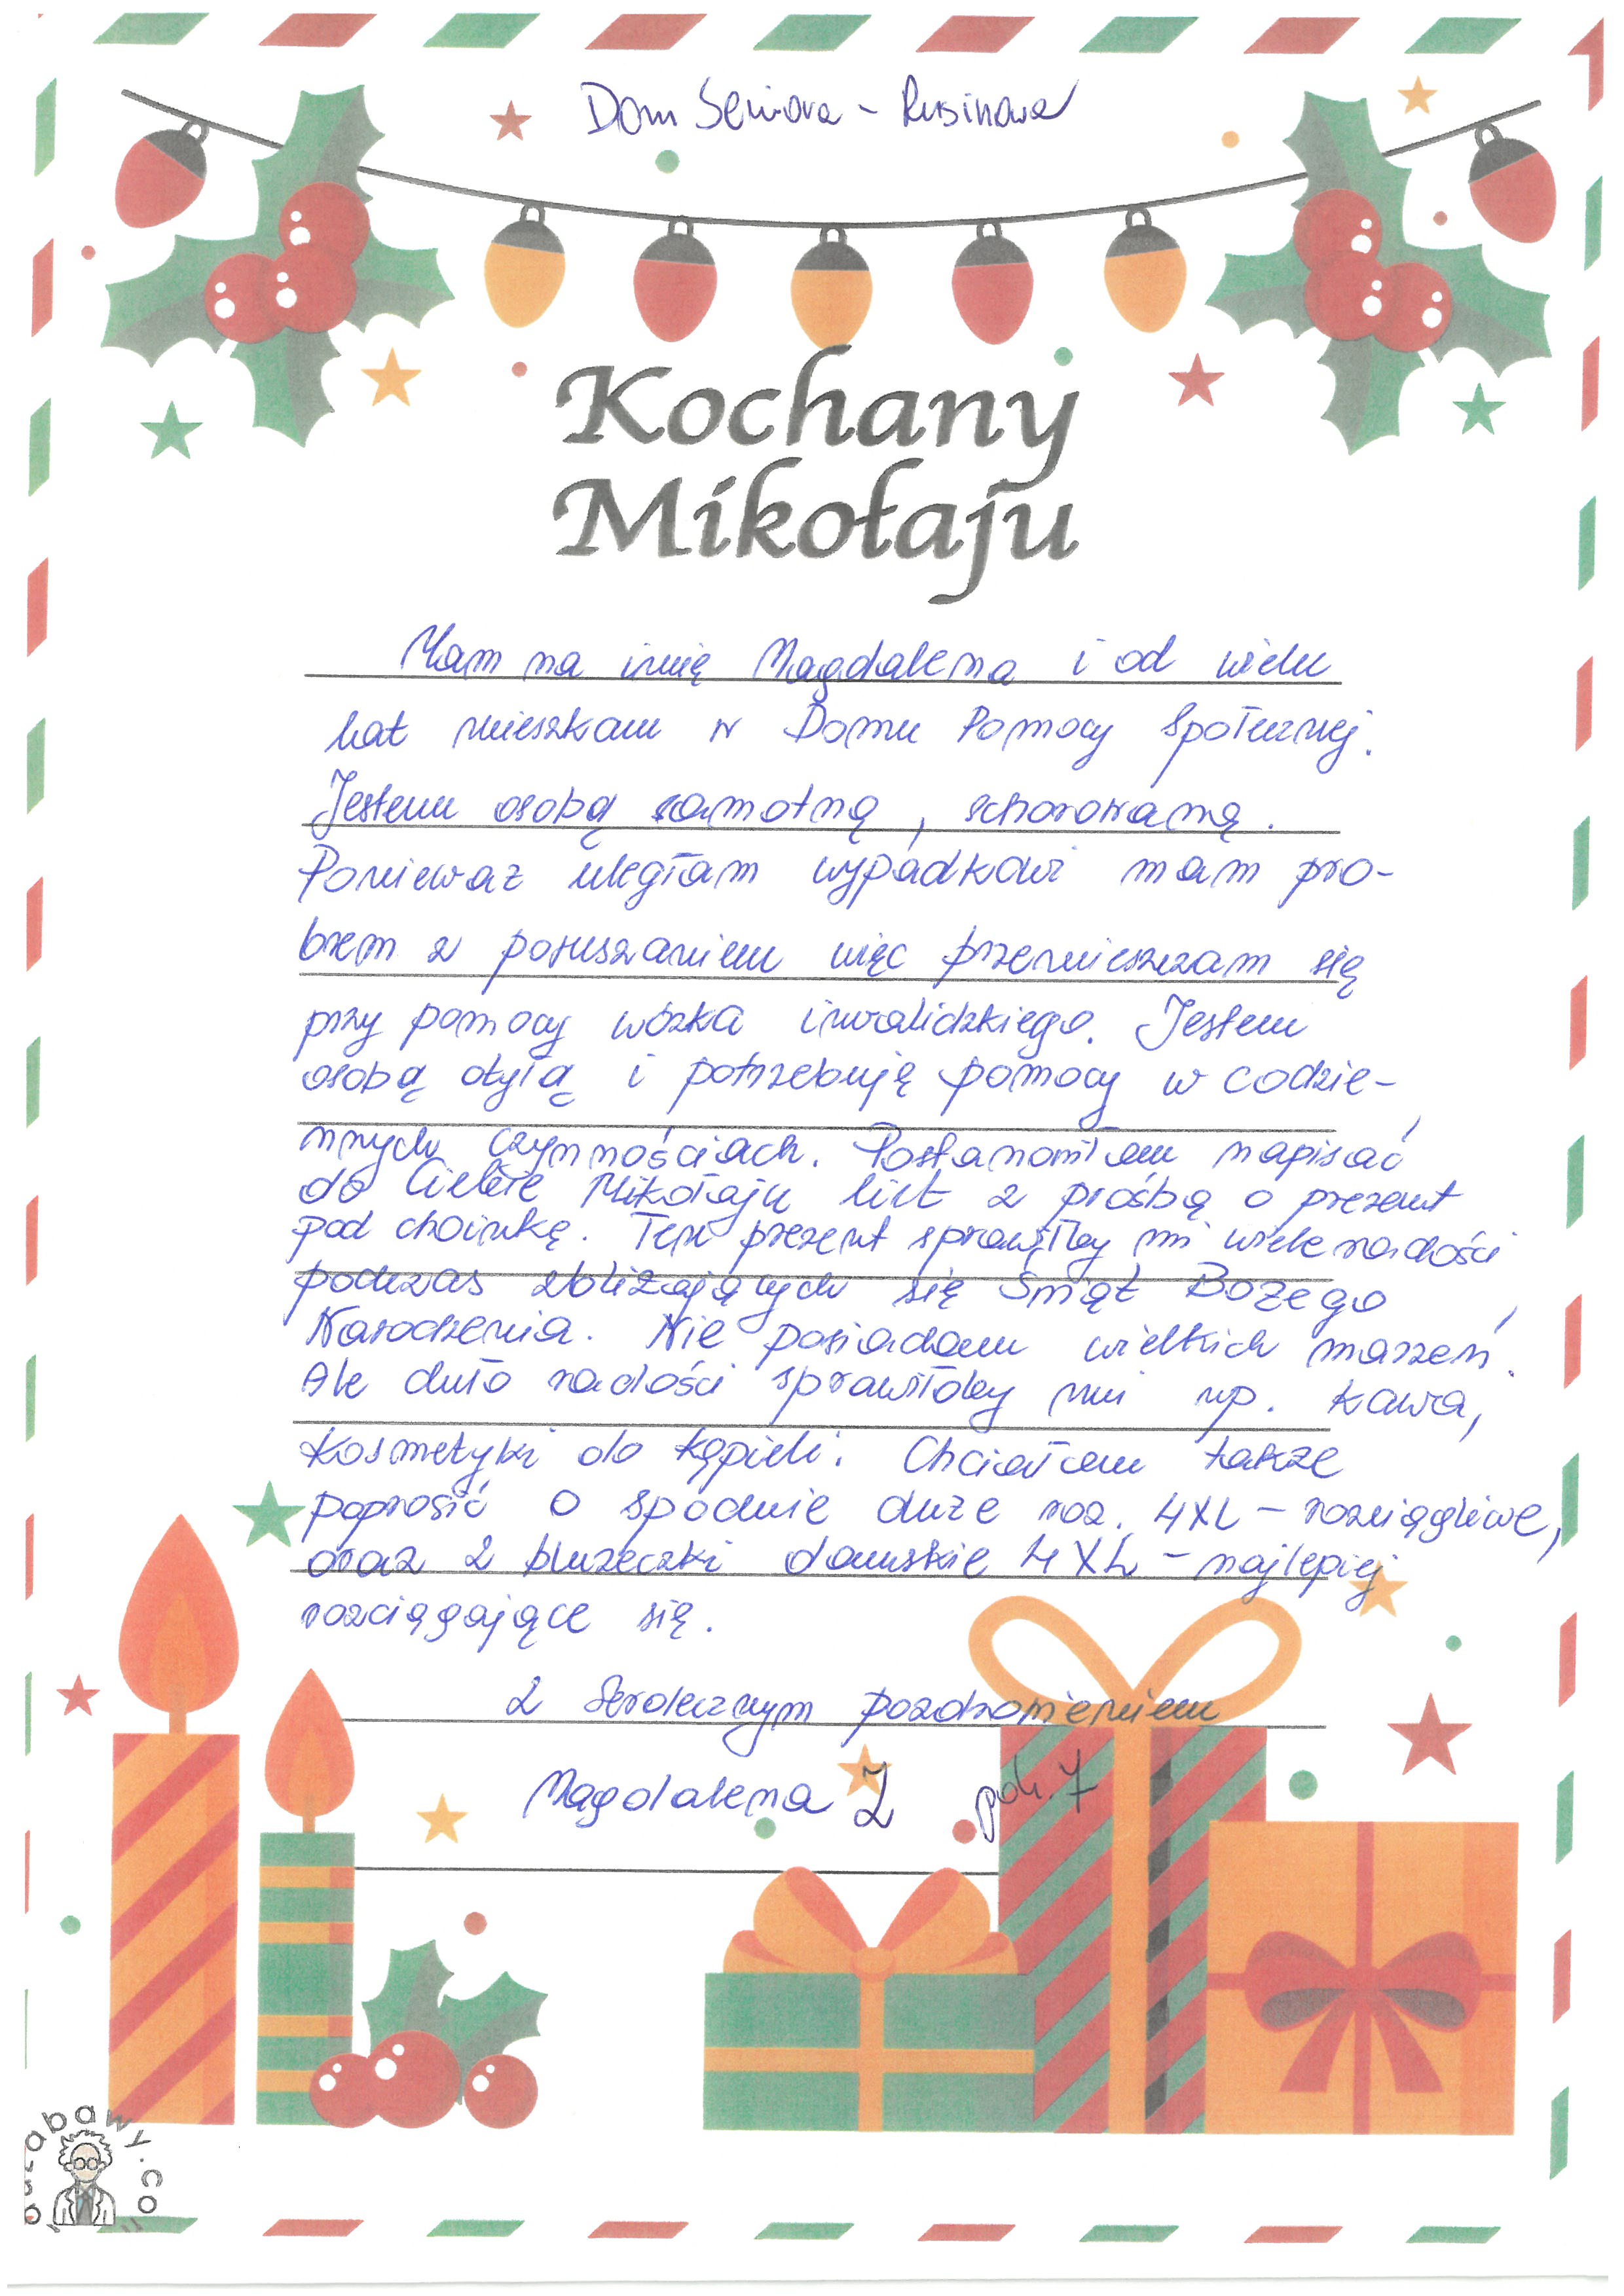 Dom Seniora - Rusinowa
Kochany
Mikołaju
Mam na imię Magdalena i od wielu
lat mieszkam w Domu Pomocy Społecznej.
Jestem osobą samotną, schorowaną.
Ponieważ uległam wypadkowi mam pro-
blem z poruszaniem więc przemieszczam się
przy pomocy wózka inwalidzkiego. Jestem
osobą otyłą i potrzebuję pomocy w codzie-
nnych czynnościach. Postanowiłam napisać
do Ciebie Mikołaju list z prośbą o prezent
pod choinkę. Ten prezent sprawiłby mi wiele radości
podczas zbliżających się Świąt Bożego
Narodzenia. Nie posiadam wielkich marzeń.
Ale dużo radości sprawiłoby mi np. kawa,
kosmetyki do kąpieli. Chciałam także
poprosić o spodnie duże roz. 4XL - rozciągliwe,
oraz 2 bluzeczki damskie 4XL - najlepiej
rozciągające się.
Z serdecznym pozdrowieniem
Magdalena Z pok. 7